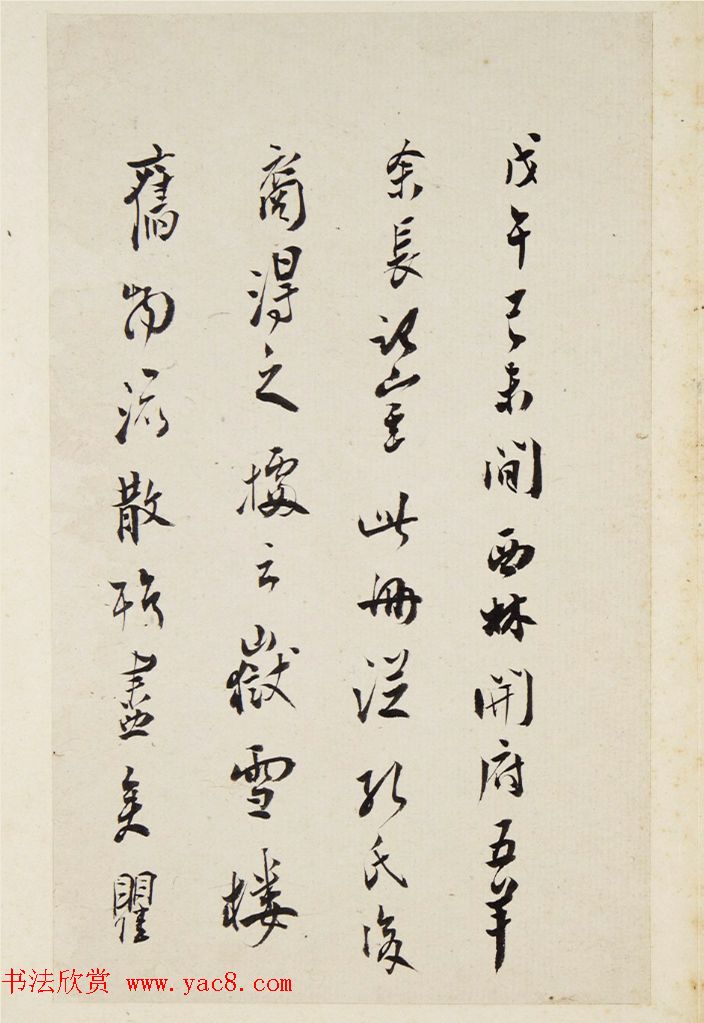 戊午己未間西林開府五羊
余長記室此冊從孔氏後
裔得之據云嶽雪樓
舊物流散殆盡矣瞿
书法欣赏 www.yac8.com